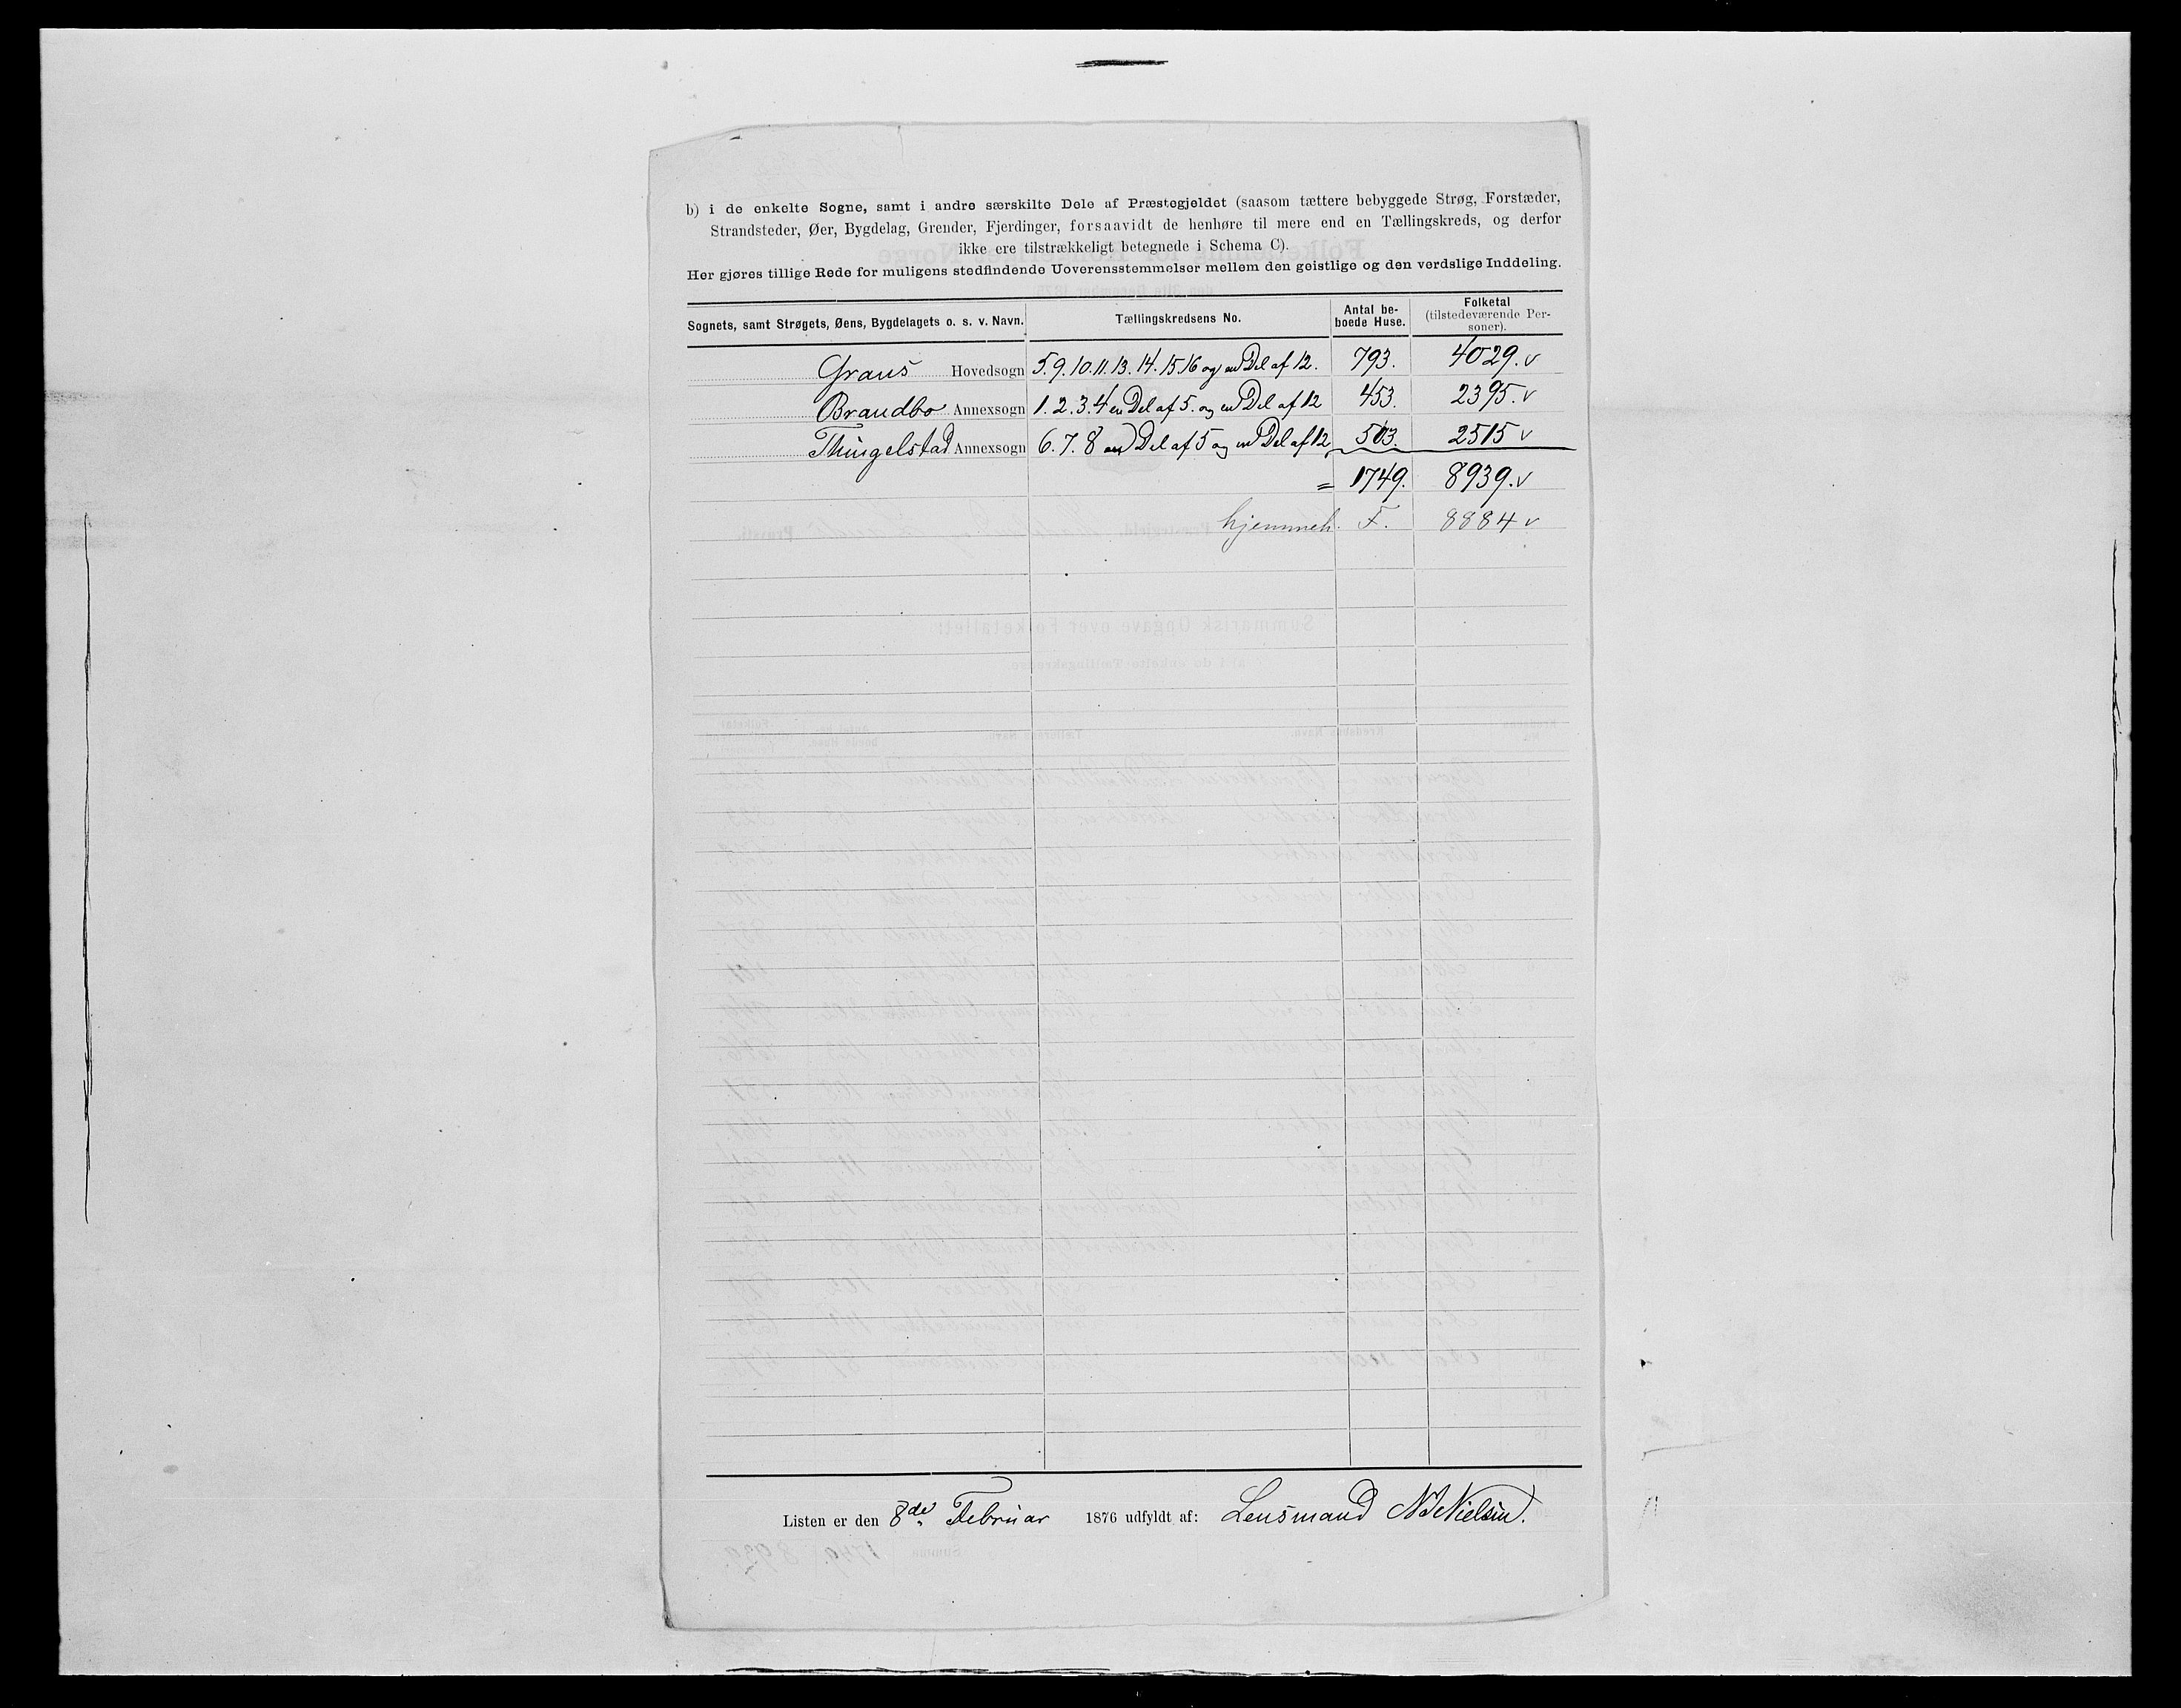 b) i de enkelte Sogne, samt i andre særskilte Dele af Præstegjeldet (saasom tættere bebyggede Strøg, Forstæder,
Strandsteder, Øer, Bygdelag, Grender, Fjerdinger, forsaavidt de henhøre til mere end en Tællingskreds, og derfor
ikke ere tilstrækkeligt betegnede i Schema C).
Her gjøres tillige Rede for muligens stedfindende Uoverensstemmelser mellem den geistlige og den verdslige Inddeling.
Sognets, samt Strøgets, Øens, Bygdelagets o. s. v. Navn. Tællingskredsens No. Antal be-boede Huse. Folketal (tilstedeværende Per-soner).
Grans Hovedsogn 5. 9. 10. 11. 13. 14. 15. 16 og en Del af 12. 793. 4029. v
Brandbo Annexsogn 1. 2. 3. 4 en Del af 5. og en Del af 12 453. 2395. v
Thingelstad Annexsogn 6. 7. 8 en Del af 5 og en Del af 12 503. 2515 v
= 1749. 8939. v
hjemmeh. F. 8884 v
Listen er den 8de Februar 1876 udfyldt af: Lensmand N Nielsen.